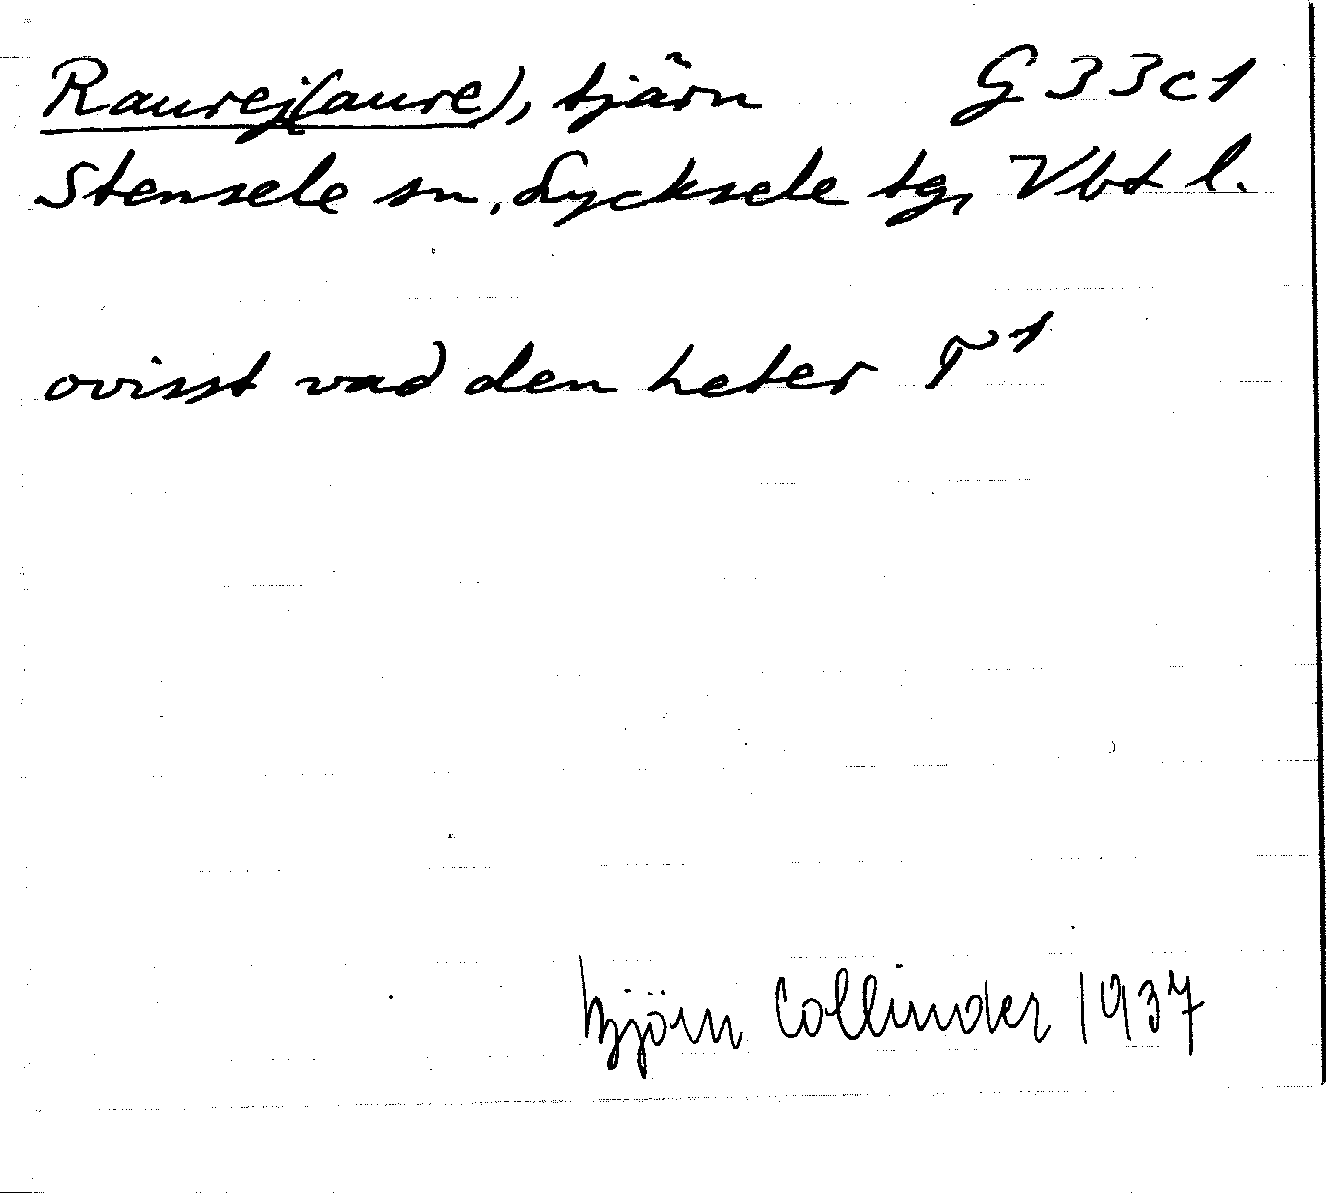 Raurej(aure), tjärn G 33c1
Stensele sn, Lycksele tg, Vbt l.
ovisst vad den heter T¹
Björn Collinder 1937